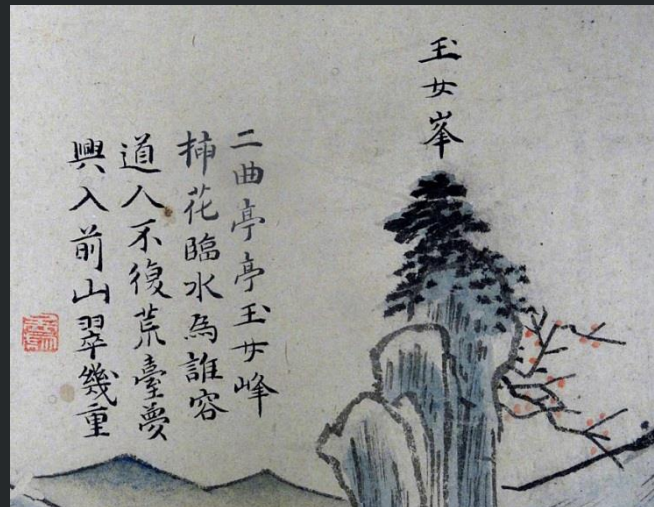 玉女峯
二曲亭亭玉女峰
揷花臨水為誰容
道人不復荒臺夢
興入前山翠幾重